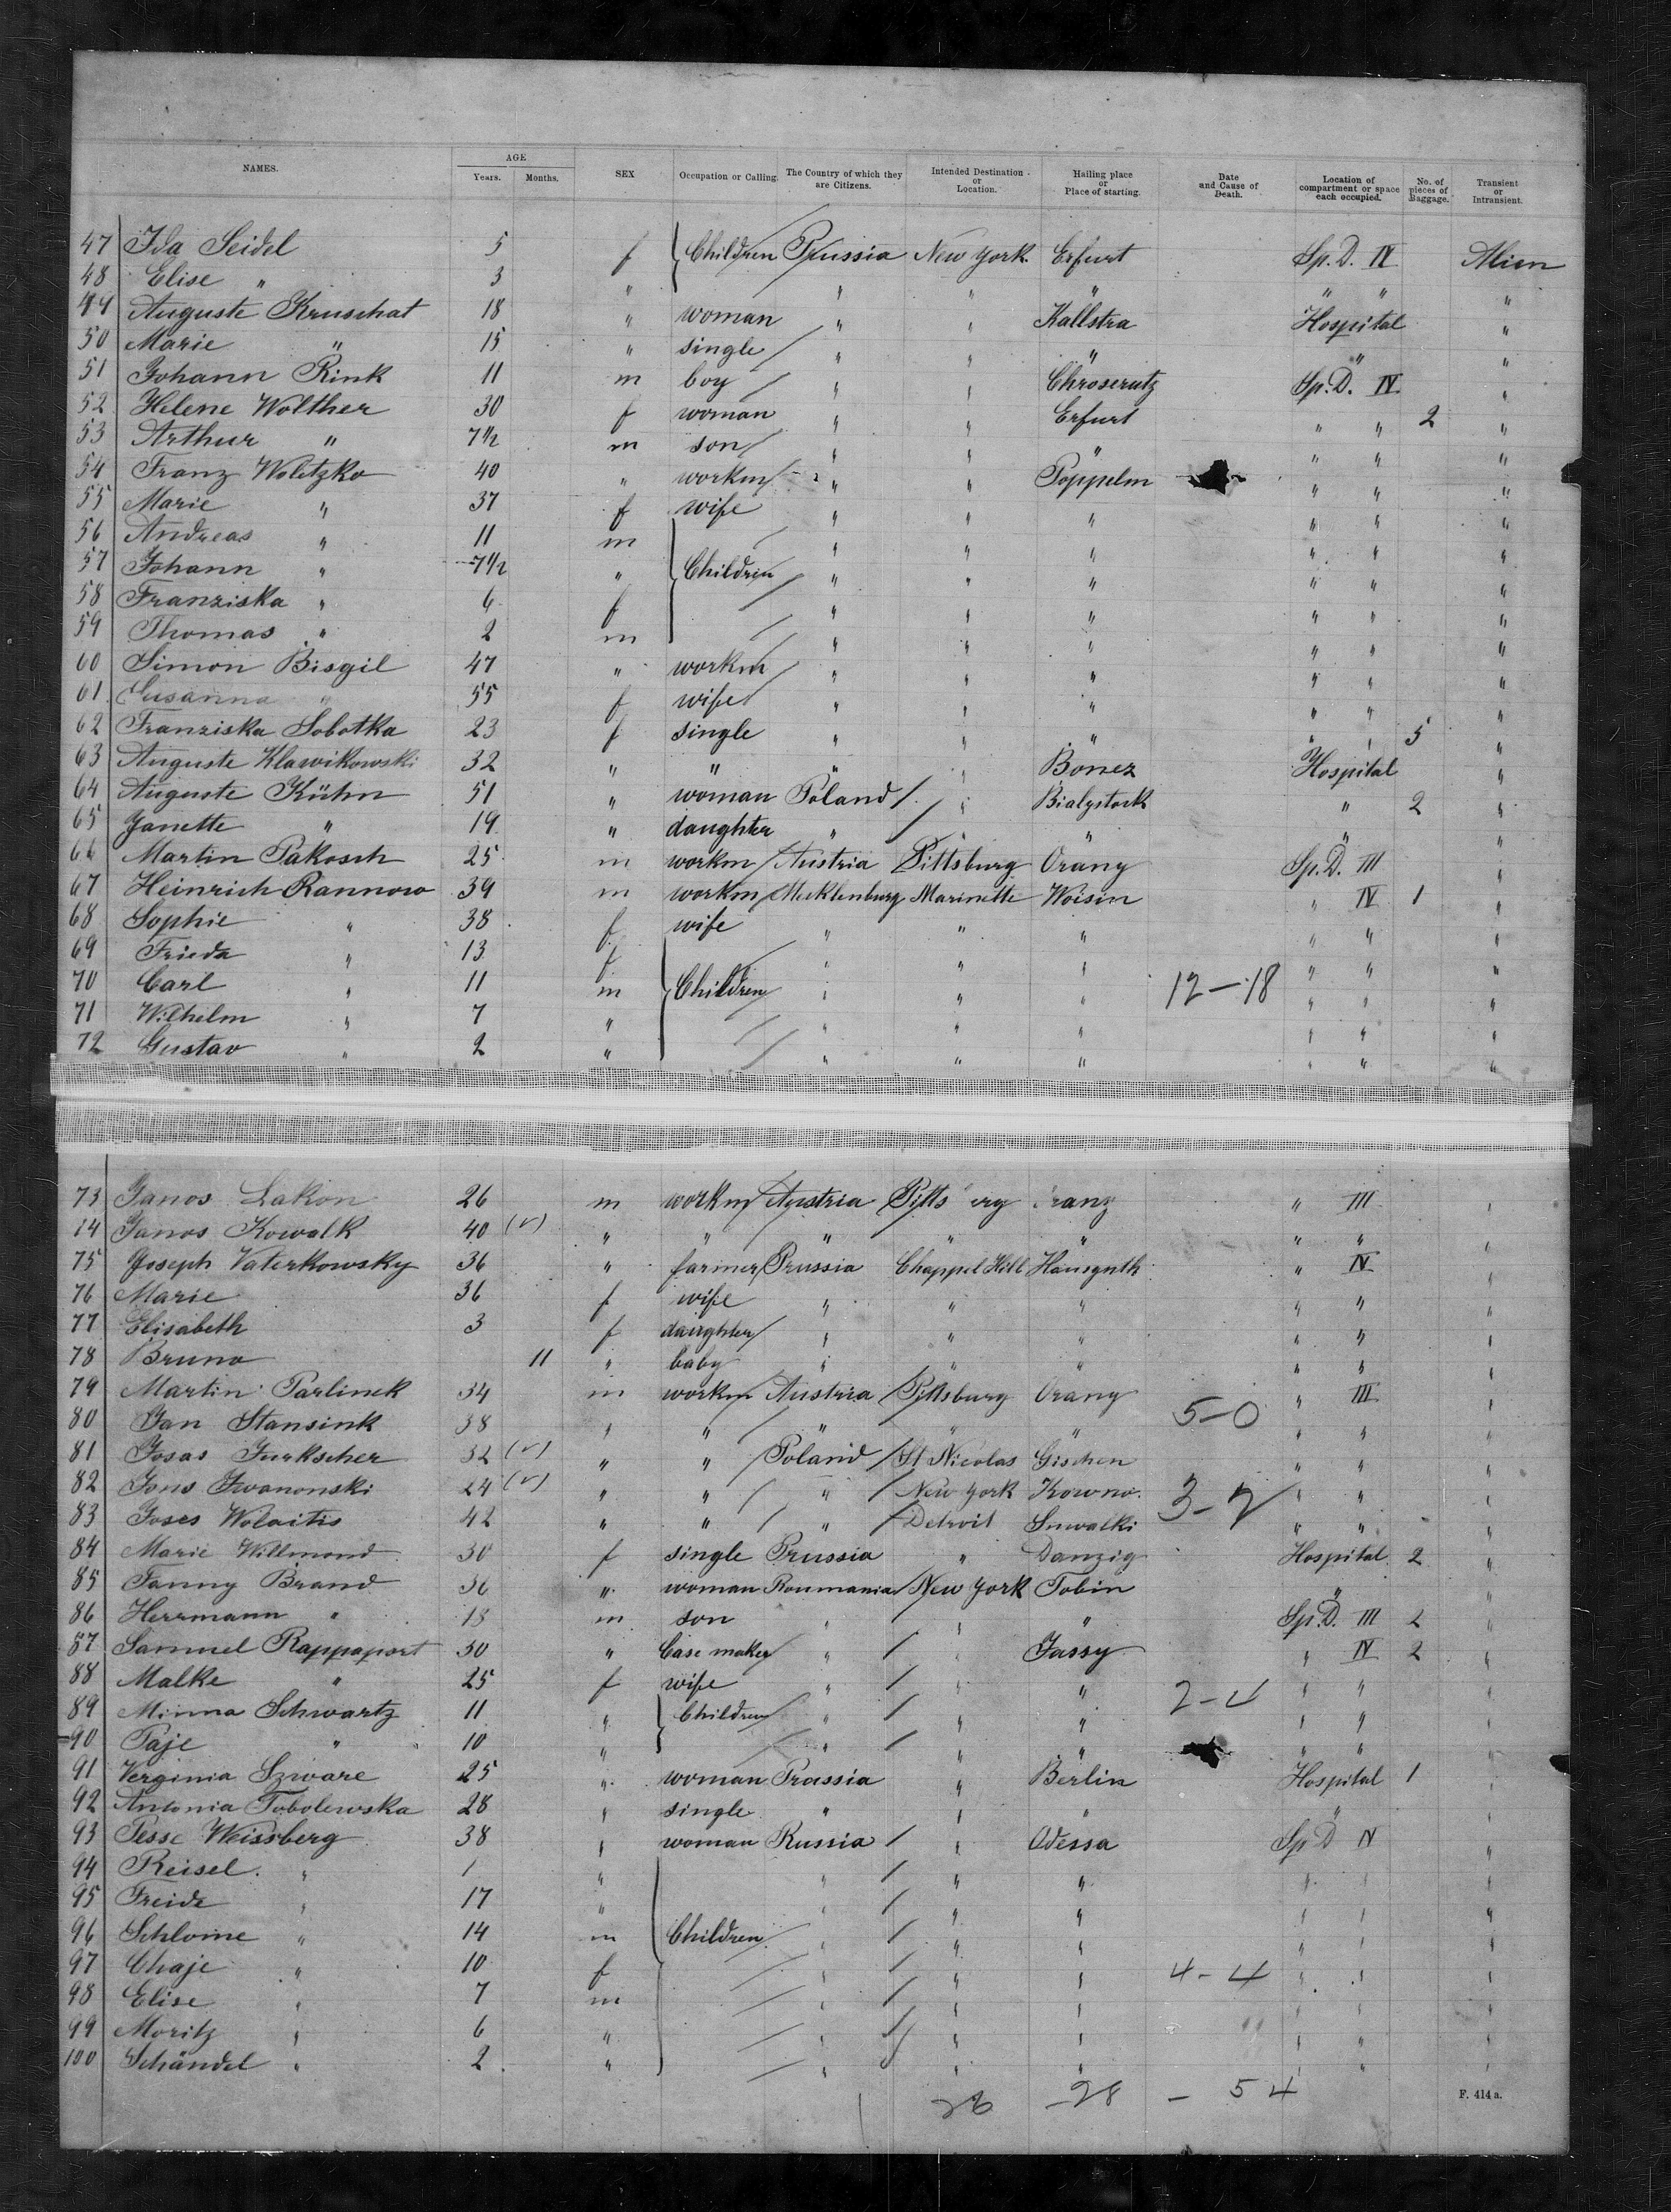 NAMES. AGE Years. Months. SEX Occupation or Calling. The Country of which they are Citizens. Intended Destination or Location. Hailing place or Place of starting. Date and Cause of Death. Location of compartment or space each occupied. No. of pieces of Baggage. Transient or Intransient.
47 Ida Seidel 5 f Children Prussia New York Erfurt Sp. D. IV Alien
48 Elise " 3 " " " " " " "
49 Auguste Kruschat 18 " woman " " Kallstra Hospital "
50 Marie " 15 " single " " " " "
51 Johann Rink 11 m boy " " Chroserutz Sp. D. IV "
52 Helene Wolther 30 f woman " " Erfurt " " 2 "
53 Arthur " 7½ m son " " " " " "
54 Franz Woletzko 40 " workm " " Poppelm " " "
55 Marie " 37 f wife " " " " " "
56 Andreas " 11 m " " " " " "
57 Johann " 7½ " Children " " " " " "
58 Franziska " 6 f " " " " " "
59 Thomas " 2 m " " " " " "
60 Simon Bisgil 47 " workm " " " " " "
61 Susanna " 55 f wife " " " " " "
62 Franziska Sobotka 23 f single " " " " " 5 "
63 Auguste Klawikowski 32 " " " " Bonez Hospital "
64 Auguste Kühn 51 " woman Poland " Bialystock " 2 "
65 Janette " 19 " daughter " " " " "
66 Martin Pakosch 25 m workm Austria Pittsburg Orany Sp. D. III "
67 Heinrich Rannow 39 m workm Mecklenburg Marinette Woisin " IV 1 "
68 Sophie " 38 f wife " " " " " "
69 Frieda " 13 f " " " " " "
70 Carl " 11 m Children " " " 12-18 " " "
71 Wilhelm " 7 " " " " " " "
72 Gustav " 2 " " " " " " "
73 Janos Lakon 26 m workm Austria Pitts erg ranz " III "
74 Janos Kowalk 40 (v) " " " " " " " "
75 Joseph Vaterkowsky 36 " farmer Prussia Chappel Hill Hansguth " IV "
76 Marie 36 f wife " " " " " "
77 Elisabeth 3 f daughter " " " " " "
78 Bruno 11 " baby " " " " " "
79 Martin Parlinek 34 m workm Austria Pittsburg Orany " III "
80 Jan Stansink 38 " " " " " 5-0 " " "
81 Josas Jurkscher 32 (v) " " Poland St Nicolas Gischen " " "
82 Jons Iwanonski 24 (v) " " " New York Kowno. 3-2 " " "
83 Joses Wolaitis 42 " " " Detroit Suwalki " " "
84 Marie Willmond 30 f single Prussia " Danzig Hospital 2 "
85 Fanny Brand 36 " woman Roumania New York Tobin " "
86 Herrmann " 18 m son " " " Sp. D. III 2 "
87 Samuel Rappaport 30 " Case maker " " Jassy " IV 2 "
88 Malke " 25 f wife " " " 2-4 " " "
89 Minna Schwartz 11 " Children " " " " " "
90 Paje " 10 " " " " " " "
91 Verginia Szware 25 " woman Prussia " Berlin Hospital 1 "
92 Antonia Tobolewska 28 " single " " " " "
93 Pesse Weissberg 38 " woman Russia " Odessa Sp D IV "
94 Reisel " 1 " " " " " " "
95 Freide " 17 " " " " " " "
96 Schloime " 14 m Children " " " " " "
97 Chaje " 10 f " " " 4-4 " " "
98 Elise " 7 m " " " " " "
99 Moritz " 6 " " " " " " "
100 Schändel " 2 " " " " " " "
26 -28 - 54
F. 414 a.